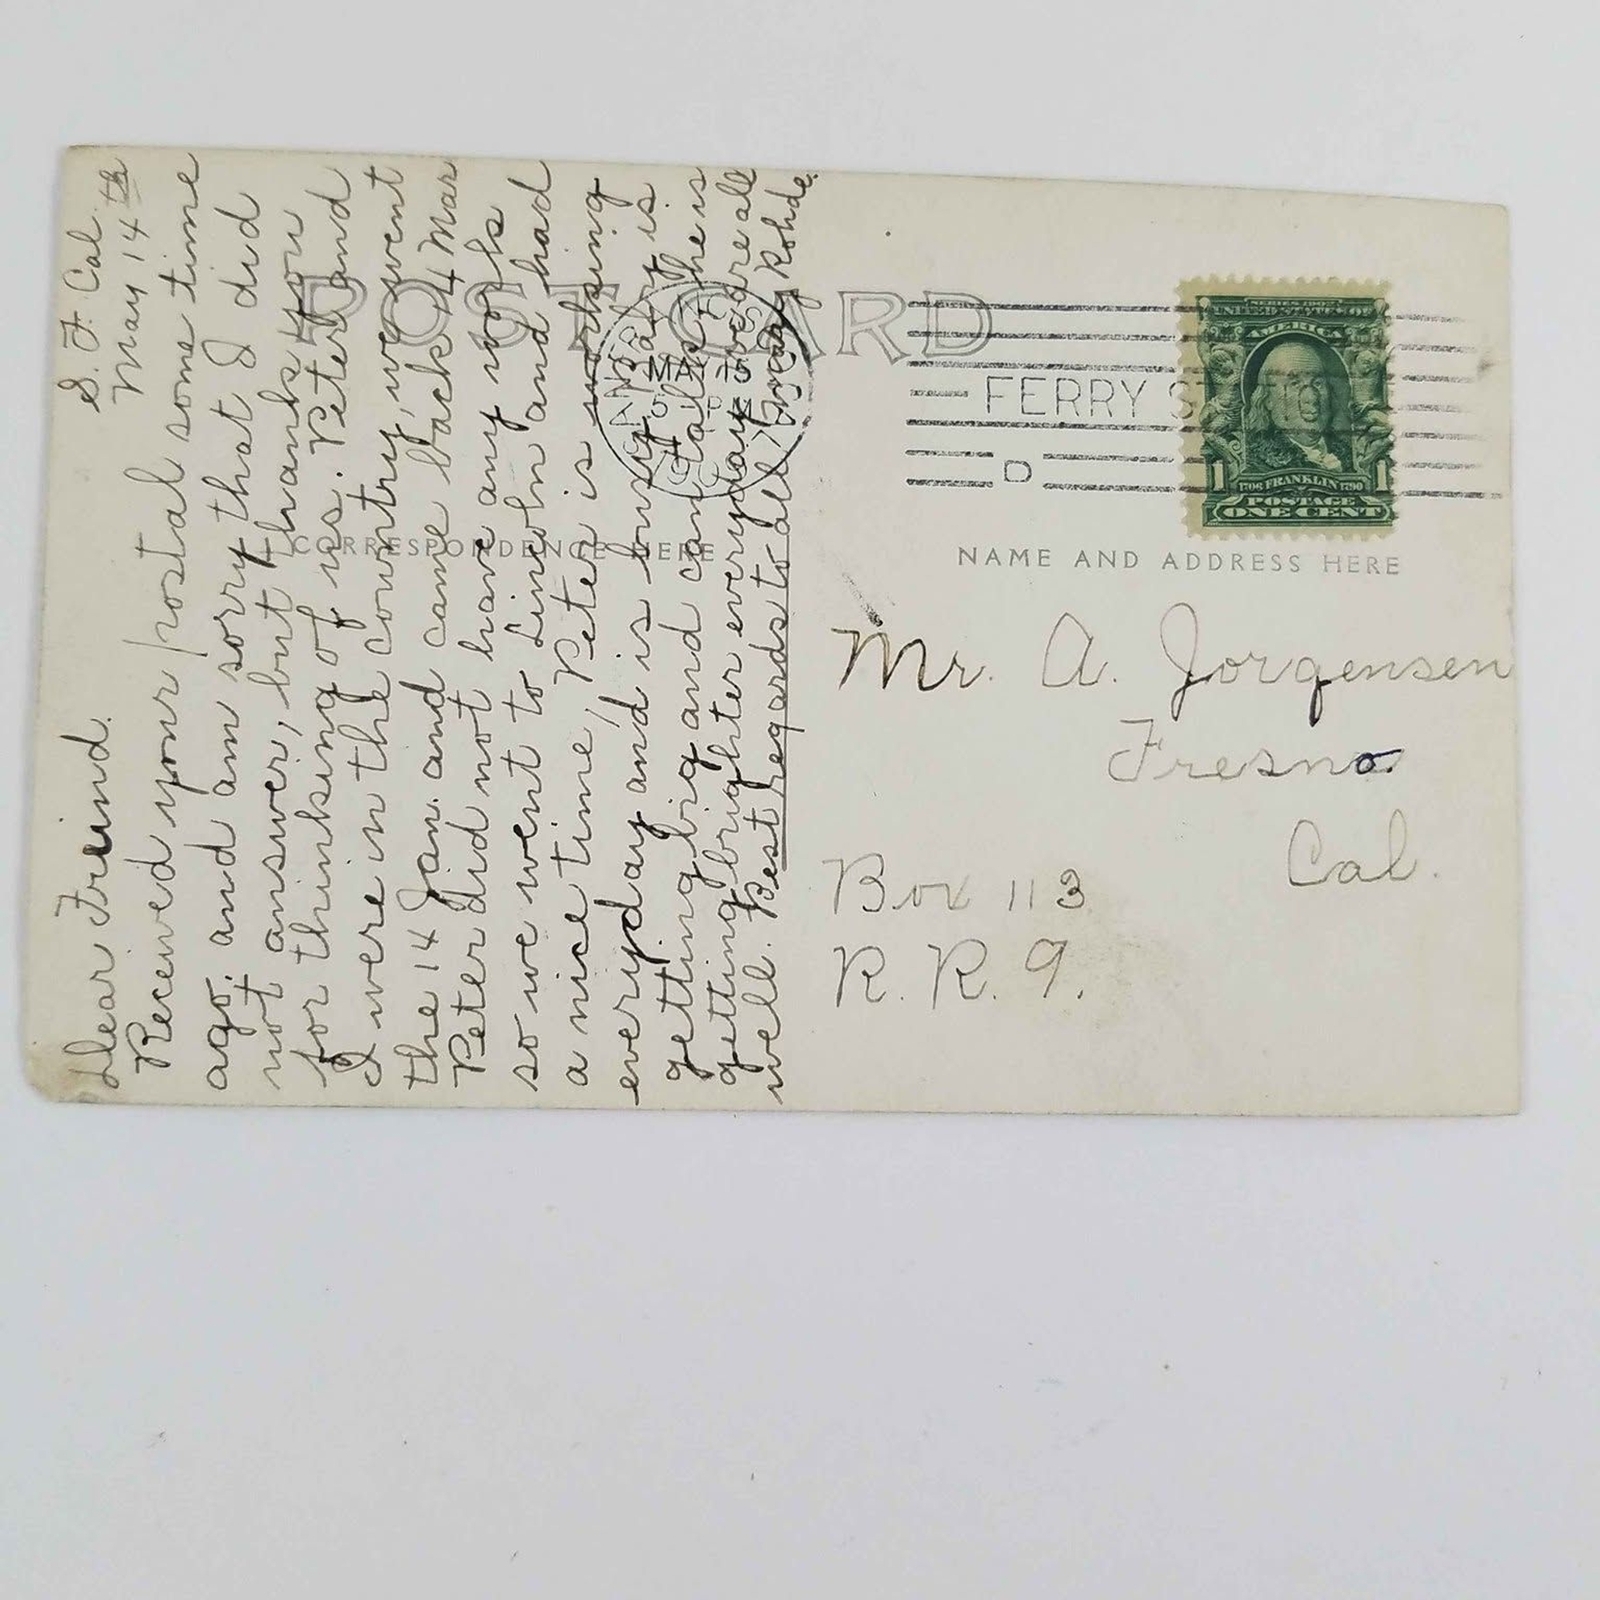 S. F. Cal.
May 14th
Dear Freind.
Received your postal some time
ago. and am sorry that I did
not answer, but thanks you
for thinking of us. Peter and
I were in the country, we went
the 14 Jan. and came back 4 Mar
Peter did not have any work
so we went to Lincoln and had
a nice time, Peter is working
everyday and is busy. is
getting big and can talk he is
getting brighter everyday we are all
well. Best regards to all May Rohde.
POST CARD
CORRESPONDENCE HERE
MAY 15
FERRY STATION
D
SERIES 1902
UNITED STATES OF
AMERICA
1 1706 FRANKLIN 1790 1
POSTAGE
ONE CENT
NAME AND ADDRESS HERE
Mr. A. Jorgensen
Fresno
Cal.
Box 113
R. R. 9.